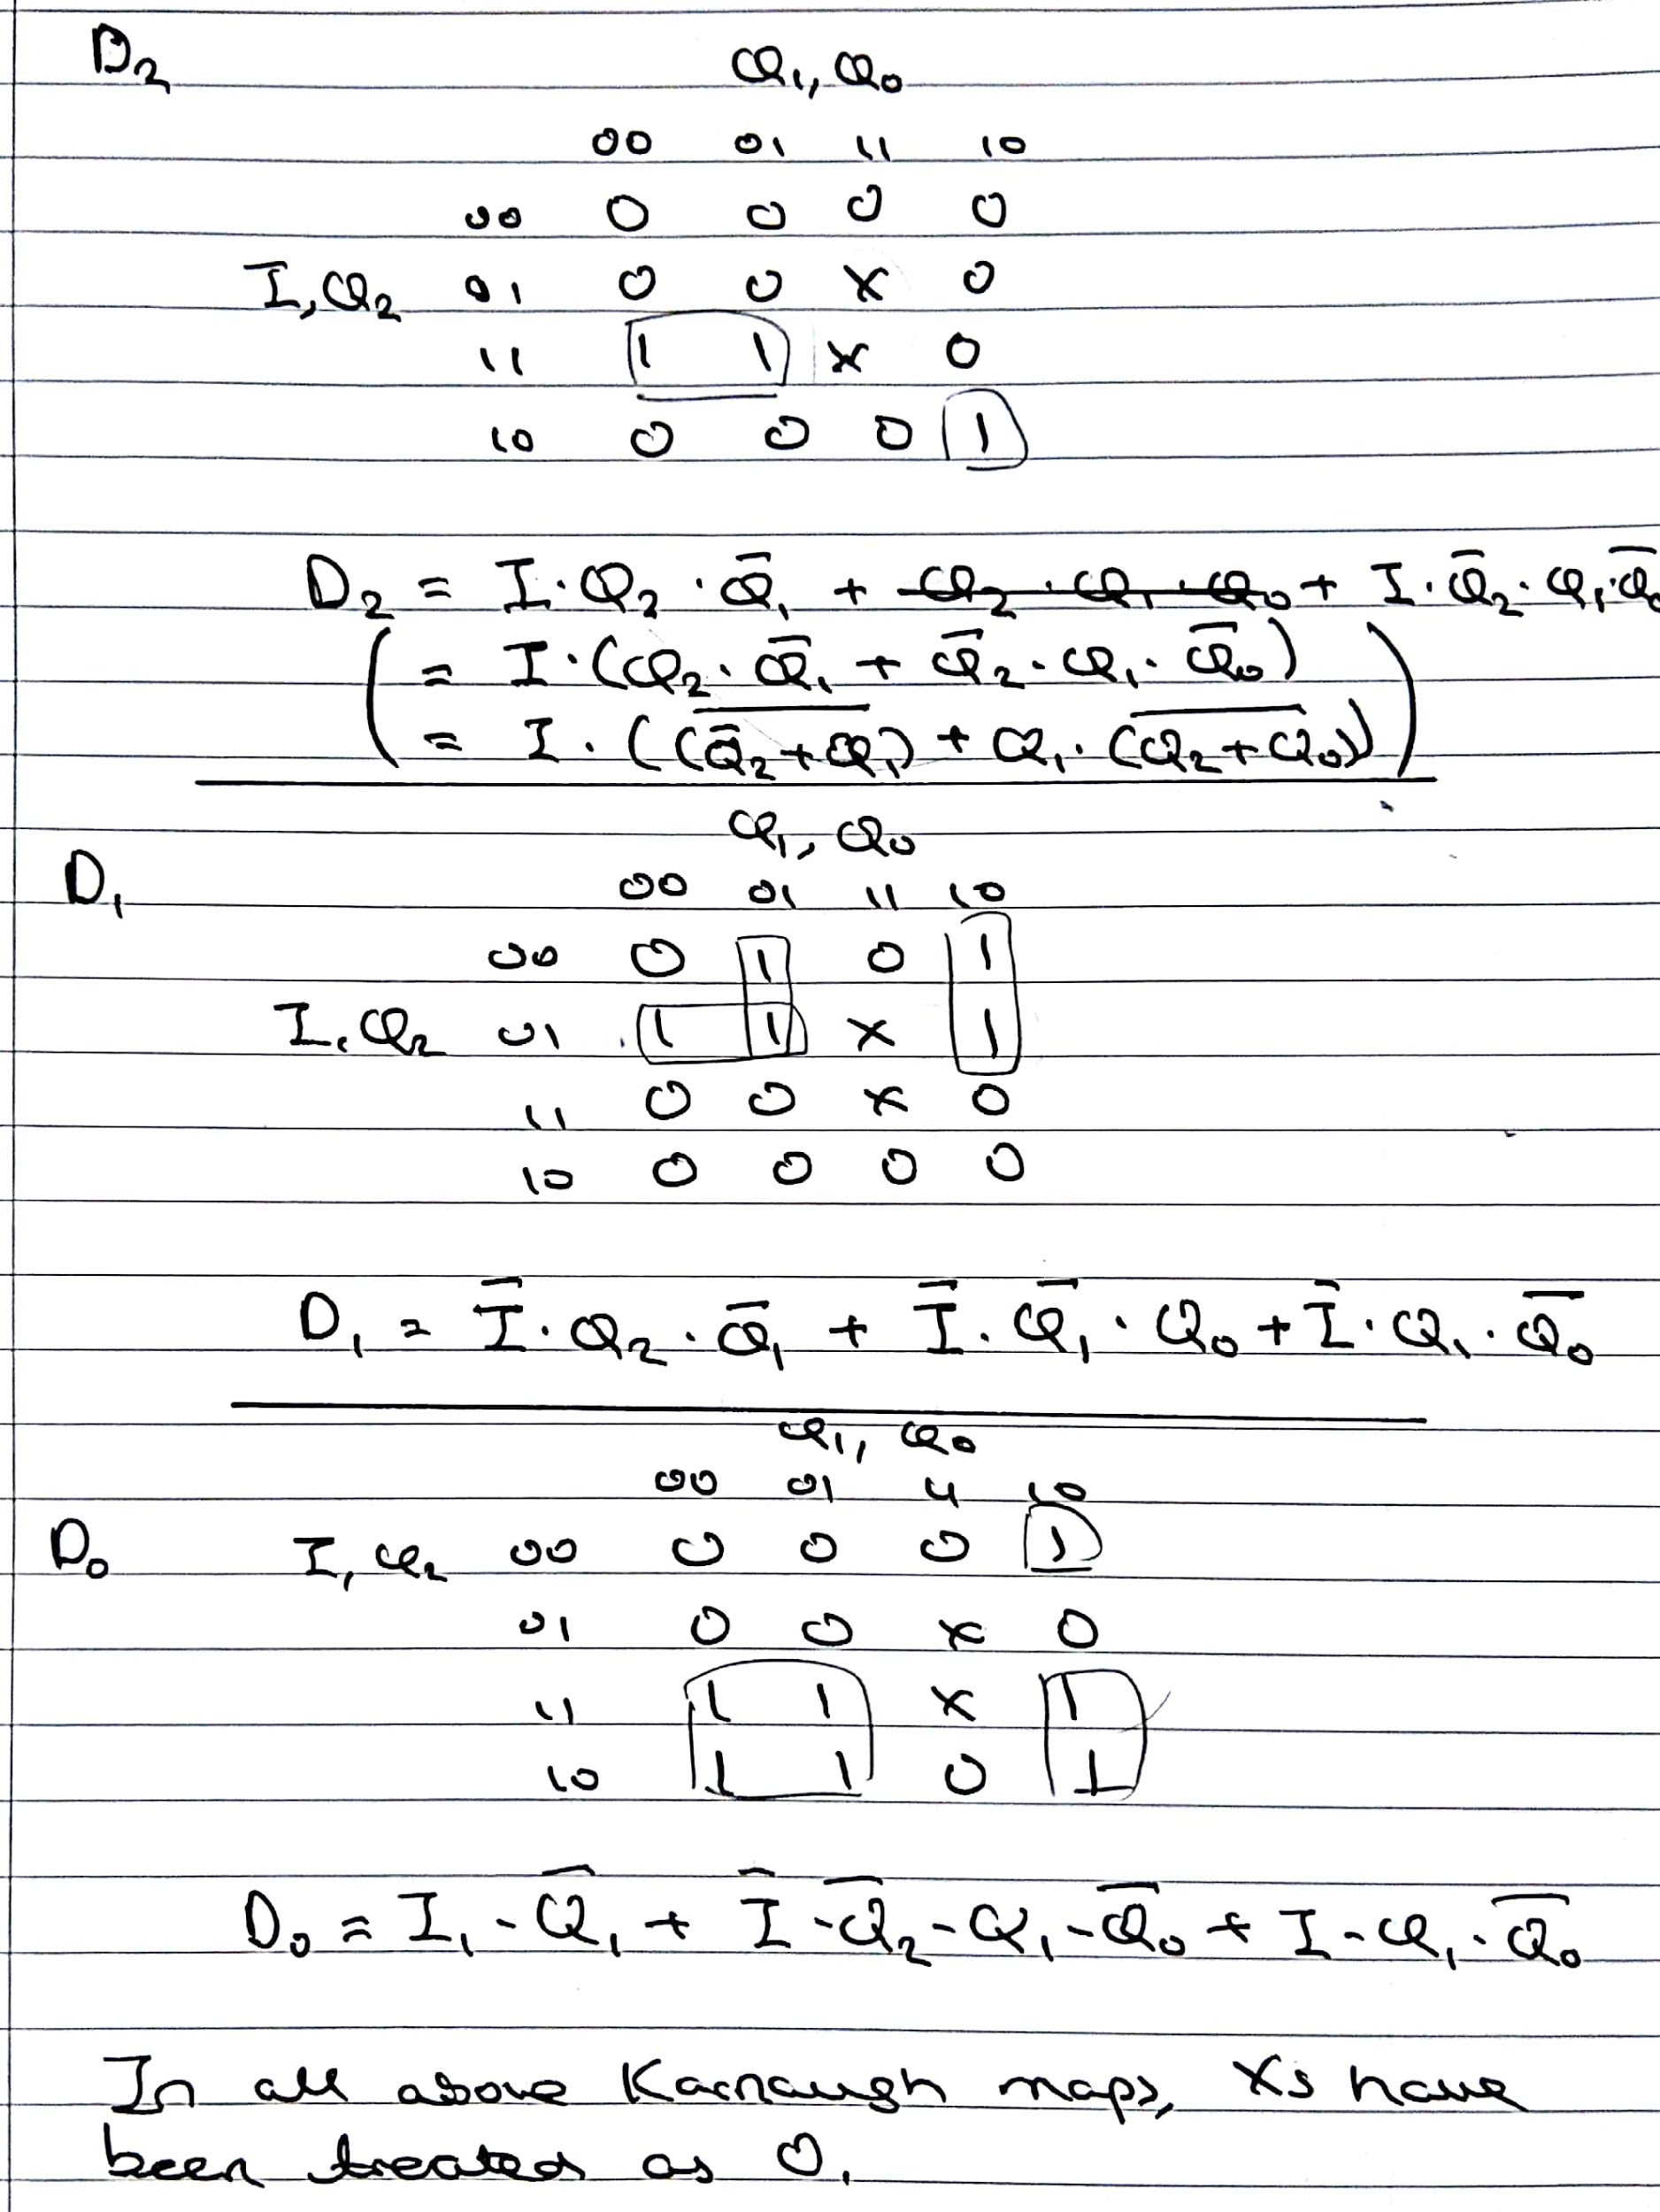 D₂
Q₁, Q₀
00 01 11 10
00 0 0 0 0
I, Q₂ 01 0 0 X 0
11 1 1 X 0
10 0 0 0 1
D₂ = I·Q₂·Q̄₁ + ~~Q₂·Q₁·Q₀~~ + I·Q̄₂·Q₁·Q̄₀
( = I·(Q₂·Q̄₁ + Q̄₂·Q₁·Q̄₀)
= I·((\overline{Q̄₂+Q₁}) + Q₁·(\overline{Q₂+Q₀})) )
Q₁, Q₀
D₁ 00 01 11 10
00 0 1 0 1
I, Q₂ 01 1 1 X 1
11 0 0 X 0
10 0 0 0 0
D₁ = Ī·Q₂·Q̄₁ + Ī·Q̄₁·Q₀ + Ī·Q₁·Q̄₀
Q₁, Q₀
00 01 11 10
D₀ I, Q₂ 00 0 0 0 1
01 0 0 X 0
11 1 1 X 1
10 1 1 0 1
D₀ = I₁·Q̄₁ + Ī·Q̄₂·Q₁·Q̄₀ + I·Q₁·Q̄₀
In all above Karnaugh maps, Xs have
been treated as 0.